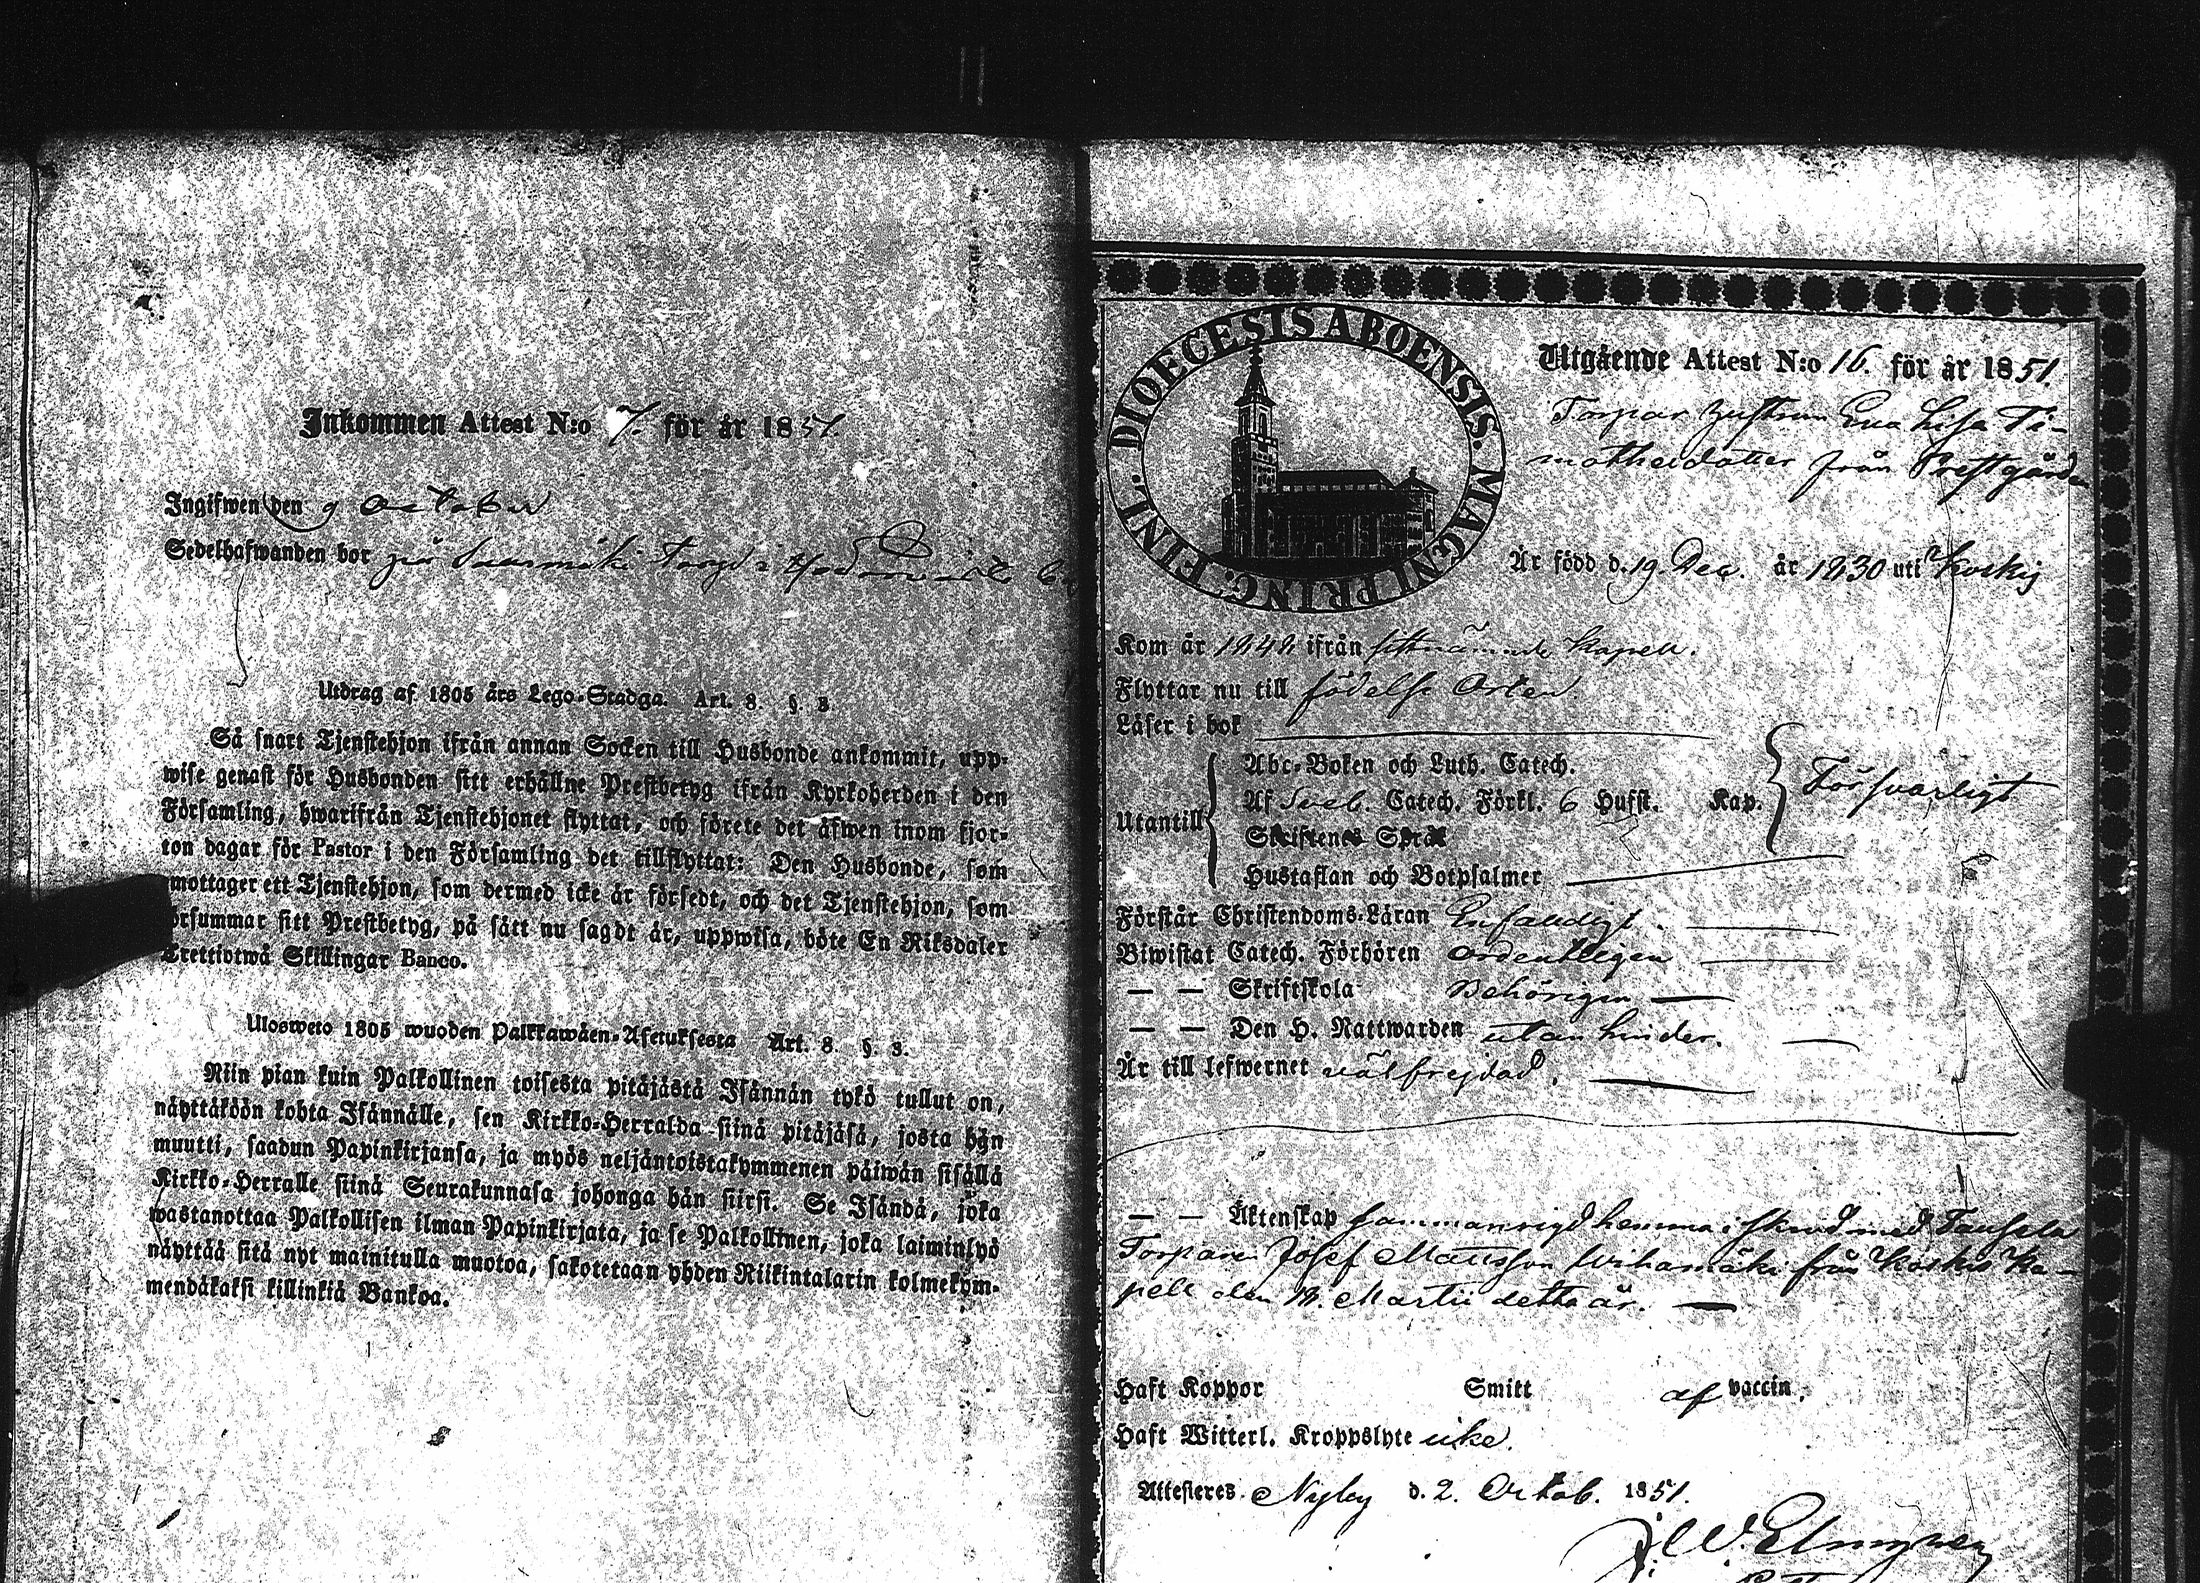 Inkommen Attest N:o 7. för år 1851.
Ingifwen den 9 October
Sedelhafwanden bor
Utdrag af 1805 års Lego-Stadga. Art. 8. §. 3.
Så snart Tjenstehjon ifrån annan Socken till Husbonde ankommit, upp-
wise genast för Husbonden sitt erhållne Prestbetyg ifrån Kyrkoherden i den
Församling, hwarifrån Tjenstehjonet flyttat, och förete det äfwen inom fjor-
ton dagar för Pastor i den Församling det tillflyttat: Den Husbonde, som
emottager ett Tjenstehjon, som dermed icke är försedt, och det Tjenstehjon, som
försummar sitt Prestbetyg, på sätt nu sagdt är, uppwisa, böte En Riksdaler
Trettiotwå Skillingar Banco.
Ulosweto 1805 wuoden Palkkawäen-Asetuksesta Art. 8. §. 3.
Niin pian kuin Palkollinen toisesta pitäjästä Isännän tykö tullut on,
näyttäköön kohta Isännälle, sen Kirkko-Herralda siinä pitäjäsä, josta hän
muutti, saadun Papinkirjansa, ja myös neljäntoistakymmenen päiwän sisällä
Kirkko-Herralle siinä Seurakunnasa johonga hän siirsi. Se Isändä, joka
wastanottaa Palkollisen ilman Papinkirjata, ja se Palkollinen, joka laiminlyö
näyttää sitä nyt mainitulla muotoa, sakotetaan yhden Riikintalarin kolmekym-
mendäkaksi killinkiä Bankoa.
DIOECESIS ABOENSIS. MAGNI PRINC. FINL.
Utgående Attest N:o 16. för år 1851.
Torpar hustrun Eva Lisa Ti-
motheidotter från Prestgård
Är född d. 19 Dec. år 1830 uti Koskis
Kom år 1848 ifrån sistnämnde Kapell.
Flyttar nu till födelse Orten
Läser i bok
Utantill
Abc-Boken och Luth. Catech.
Af Sveb. Catech. Förkl. 6 Hufst. Kap. Försvarligt
Skriftenes Språk
Hustaflan och Botpsalmer
Förstår Christendoms-Läran Enfaldigt.
Biwistat Catech. Förhören ordentligen
— — Skriftskola Behörigen
— — Den H. Nattwarden utan hinder.
Är till lefwernet välfrejdad.
— — Äktenskap sammanvigd hemma i med
Torparen Josef Mattsson Wihamäki från Koskis Ka-
pell den 18. Martii detta år.
Haft Koppor Smitt af vaccin.
Haft Witterl. Kroppslyte icke.
Attesteres Nyby d. 2. Octob. 1851.